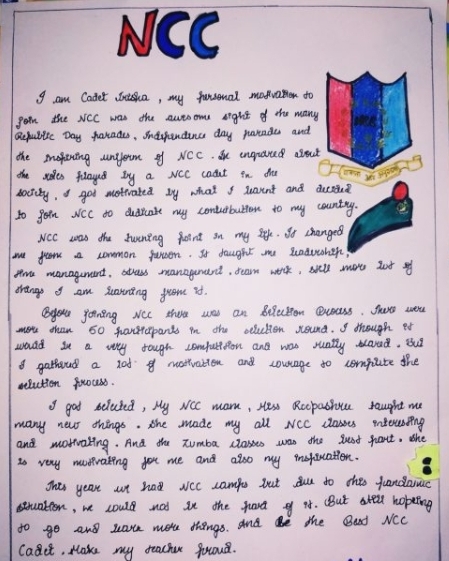 NCC
I am Cadet Trisha, my personal motivation to
join the NCC was the awesome sight of the many
Republic Day parades, Independence day parades and
the inspiring uniform of NCC. Se engraved about
the roles played by a NCC cadet in the
society. I got motivated by what I learnt and decided
to join NCC to dedicate my contribution to my country.
NCC was the turning point in my life. It changed
me from a common person. It taught me leadership,
time management, stress management, team work, still more list of
things I am learning from it.
Before joining NCC there was an Selection Process. There were
more than 60 participants in the selection round. I though it
would be a very tough competition and was really scared. But
I gathered a lot of motivation and courage to complete the
selection process.
I got selected, My NCC mam, Miss Roopashree taught me
many new things. She made my all NCC classes interesting
and motivating. And the Zumba classes was the best part. She
is very motivating for me and also my inspiration.
This year we had NCC camps but due to this pandamic
situation, we could not be the part of it. But still hoping
to go and learn more things. And Be the Best NCC
Cadet. Make my teacher proud.